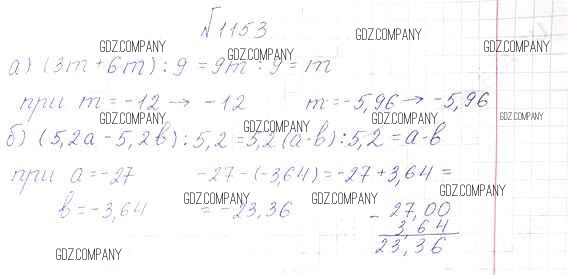 №1153
GDZ.COMPANY GDZ.COMPANY GDZ.COMPANY GDZ.COMPANY
а) (3m + 6m) : 9 = 9m : 9 = m
при m = -12 → -12 m = -5,96 → -5,96
GDZ.COMPANY GDZ.COMPANY GDZ.COMPANY GDZ.COMPANY
б) (5,2a - 5,2b) : 5,2 = 5,2 (a - b) : 5,2 = a - b
при a = -27 -27 - (-3,64) = -27 + 3,64 =
b = -3,64 = -23,36
GDZ.COMPANY GDZ.COMPANY GDZ.COMPANY
- 27,00
3,64
23,36
GDZ.COMPANY